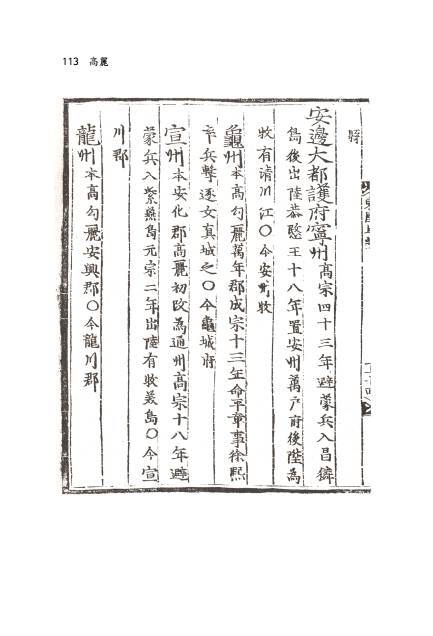 113 高麗
縣
安邊大都護府寧州高宗四十三年避蒙兵入昌獜
島後出陸恭愍王十八年置安州萬戶府後陞為
牧有淸川江○今安州牧
龜州本高勾麗萬年郡成宗十三年命平章事徐熙
率兵擊逐女真城之○今龜城府
宣州本安化郡高麗初改為通州高宗十八年避
蒙兵入紫燕島元宗二年出陸有牧羙島○今宣
川郡
龍州本高勾麗安興郡○今龍川郡